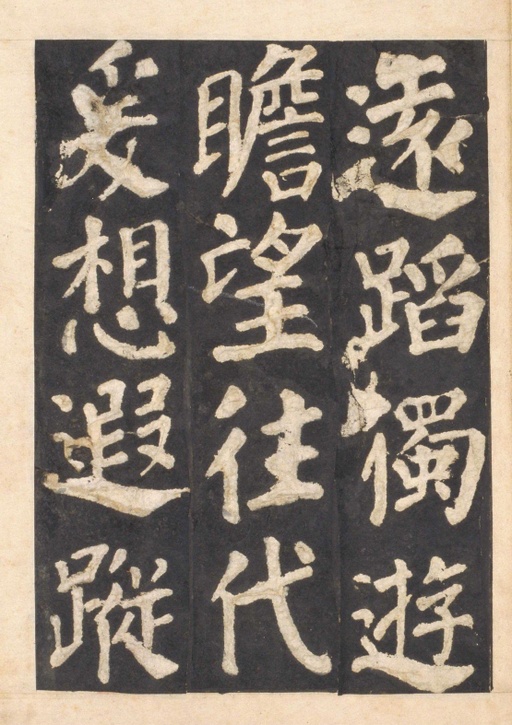 遠蹈獨遊
瞻望往代
爰想遐蹤